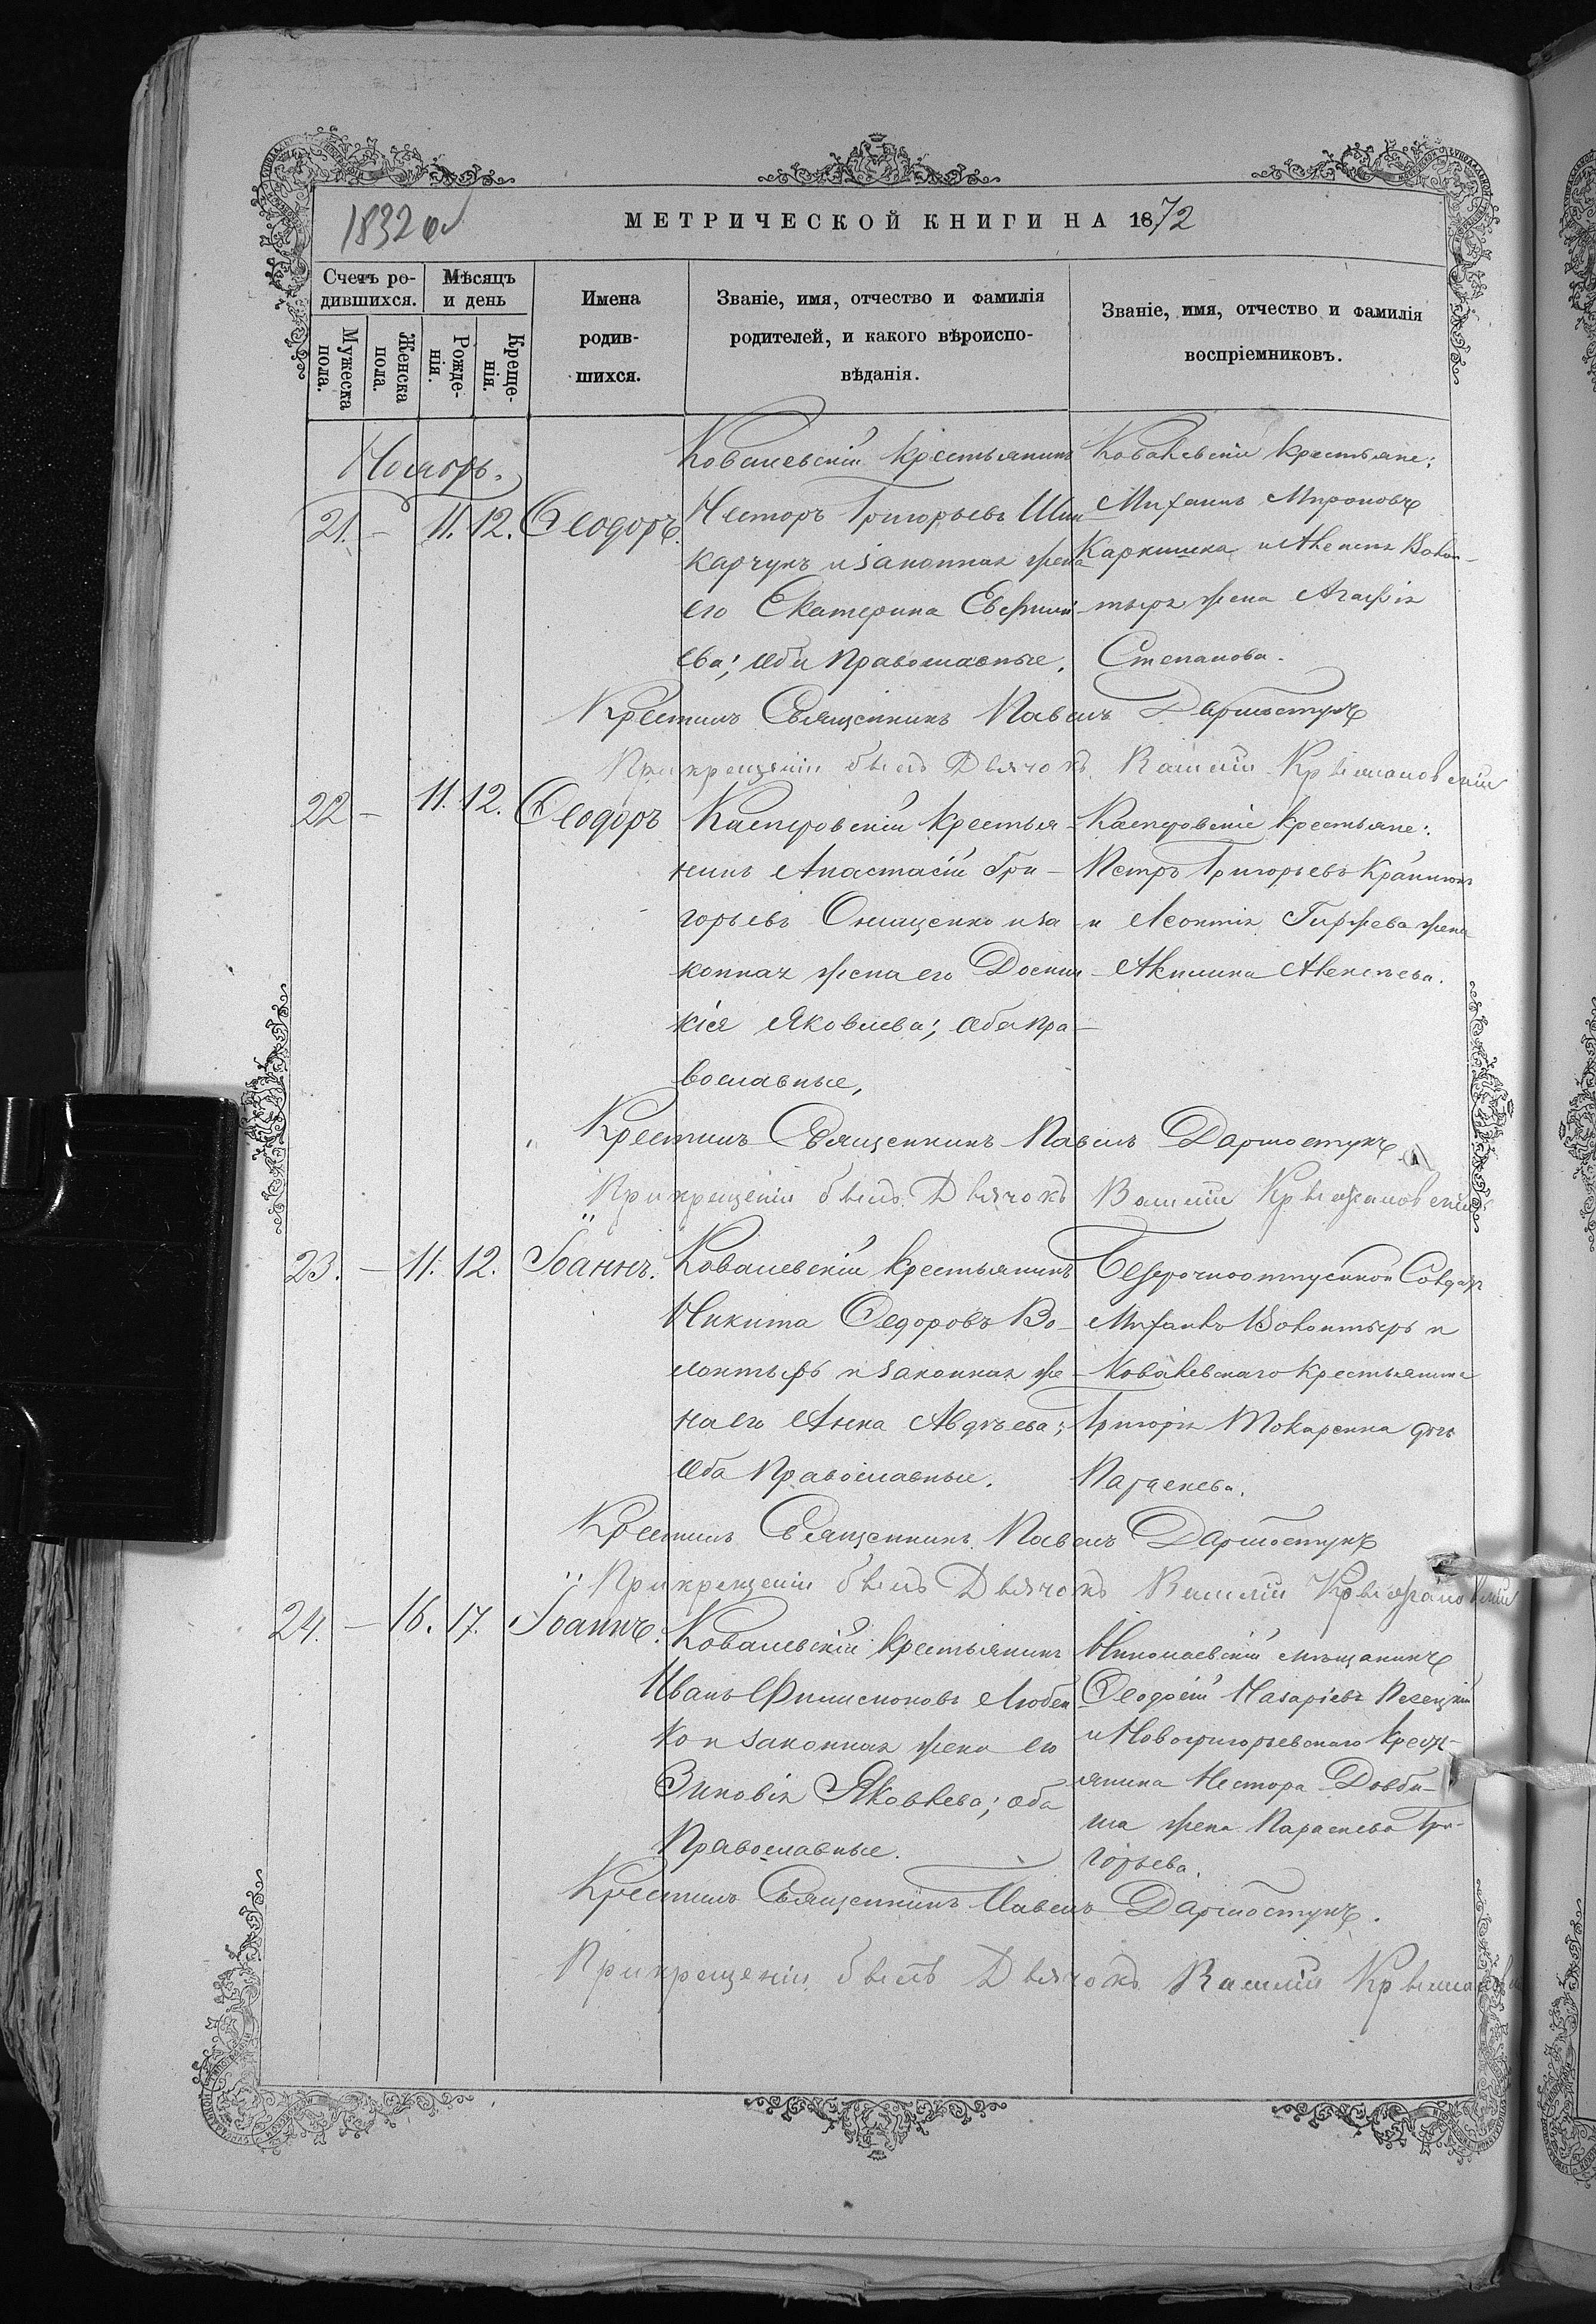 1832 об
МЕТРИЧЕСКОЙ КНИГИ НА 1872
Счетъ родившихся.
Мѣсяцъ и день
Имена родившихся.
Званіе, имя, отчество и фамилія родителей, и какого вѣроисповѣданія.
Званіе, имя, отчество и фамилія воспріемниковъ.
Мужеска пола.
Женска пола.
Рожденія.
Крещенія.
Ноябрь.
21. - 11. 12. Ѳеодоръ.
Ковалевскій крестьянинъ
Несторъ Григорьевъ Шин
карчукъ и законная жена
его Екатерина Евфиміе
ва; оба православные.
Ковалевскіе крестьяне:
Михаилъ Мироновъ
и Волон-
тыря жена Агафія
Степанова.
Крестилъ Священникъ Павелъ Дармостукъ
При крещеніи былъ Дьячокъ Василій Крыжановскій
22 - 11. 12. Ѳеодоръ
Касперовскій крестья-
нинъ Анастасій Гри-
горьевъ Онищенко и за-
конная жена его Доски-
кія Яковлева; оба пра-
вославные,
Касперовскіе крестьяне:
Петръ Григорьевъ
и Леонтія жена
Акилина Алексѣева.
Крестилъ Священникъ Павелъ Дармостукъ
При крещеніи былъ Дьячокъ Василій Крыжановскій
23. - 11. 12. Іоаннъ.
Ковалевскій крестьянинъ
Никита Ѳедоровъ Во-
лонтырь и законная же-
на его Анна Авдѣева;
оба Православные.
Безсрочноотпускной Солдатъ
Михаилъ Волонтырь и
Ковалевскаго крестьянина
Григорія Токаренка дочь
Параскева.
Крестилъ Священникъ Павелъ Дармостукъ
При крещеніи былъ Дьячокъ Василій Крыжановскій
24. - 16. 17. Іоаннъ.
Ковалевскій крестьянинъ
Иванъ Филимоновъ Любен
ко и законная жена его
Зиновія Яковлева; оба
Православные.
Николаевскій мѣщанинъ
Ѳеодосій Назаріевъ
и Новогригорьевскаго крест-
янина Нестора Довби-
ша жена Параскева Гри-
горьева.
Крестилъ Священникъ Павелъ Дармостукъ.
При крещеніи былъ Дьячокъ Василій